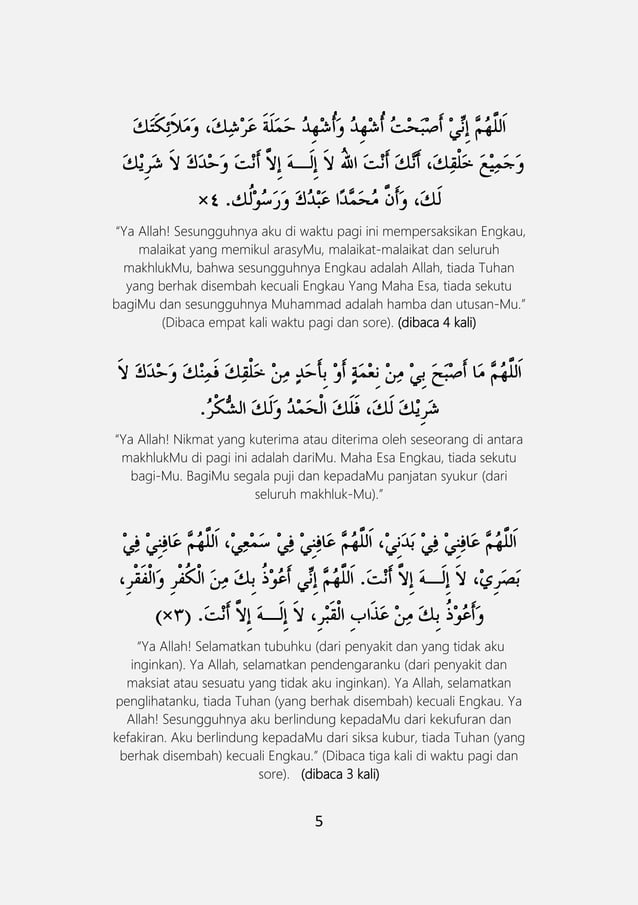 اَللَّهُمَّ إِنِّيْ أَصْبَحْتُ أُشْهِدُ وَأُشْهِدُ حَمَلَةَ عَرْشِكَ، وَمَلاَئِكَتَكَ
وَجَمِيْعَ خَلْقِكَ، أَنَّكَ أَنْتَ اللهُ لاَ إِلَـــهَ إِلاَّ أَنْتَ وَحْدَكَ لاَ شَرِيْكَ
لَكَ، وَأَنَّ مُحَمَّدًا عَبْدُكَ وَرَسُوْلُك. ٤×
“Ya Allah! Sesungguhnya aku di waktu pagi ini mempersaksikan Engkau,
malaikat yang memikul arasyMu, malaikat-malaikat dan seluruh
makhlukMu, bahwa sesungguhnya Engkau adalah Allah, tiada Tuhan
yang berhak disembah kecuali Engkau Yang Maha Esa, tiada sekutu
bagiMu dan sesungguhnya Muhammad adalah hamba dan utusan-Mu.”
(Dibaca empat kali waktu pagi dan sore). (dibaca 4 kali)
اَللَّهُمَّ مَا أَصْبَحَ بِيْ مِنْ نِعْمَةٍ أَوْ بِأَحَدٍ مِنْ خَلْقِكَ فَمِنْكَ وَحْدَكَ لاَ
شَرِيْكَ لَكَ، فَلَكَ الْحَمْدُ وَلَكَ الشُّكْرُ.
“Ya Allah! Nikmat yang kuterima atau diterima oleh seseorang di antara
makhlukMu di pagi ini adalah dariMu. Maha Esa Engkau, tiada sekutu
bagi-Mu. BagiMu segala puji dan kepadaMu panjatan syukur (dari
seluruh makhluk-Mu).”
اَللَّهُمَّ عَافِنِيْ فِيْ بَدَنِيْ، اَللَّهُمَّ عَافِنِيْ فِيْ سَمْعِيْ، اَللَّهُمَّ عَافِنِيْ فِيْ
بَصَرِيْ، لاَ إِلَـــهَ إِلاَّ أَنْتَ. اَللَّهُمَّ إِنِّي أَعُوْذُ بِكَ مِنَ الْكُفْرِ وَالْفَقْرِ،
وَأَعُوْذُ بِكَ مِنْ عَذَابِ الْقَبْرِ، لاَ إِلَـــهَ إِلاَّ أَنْتَ. (٣×)
“Ya Allah! Selamatkan tubuhku (dari penyakit dan yang tidak aku
inginkan). Ya Allah, selamatkan pendengaranku (dari penyakit dan
maksiat atau sesuatu yang tidak aku inginkan). Ya Allah, selamatkan
penglihatanku, tiada Tuhan (yang berhak disembah) kecuali Engkau. Ya
Allah! Sesungguhnya aku berlindung kepadaMu dari kekufuran dan
kefakiran. Aku berlindung kepadaMu dari siksa kubur, tiada Tuhan (yang
berhak disembah) kecuali Engkau.” (Dibaca tiga kali di waktu pagi dan
sore). (dibaca 3 kali)
5